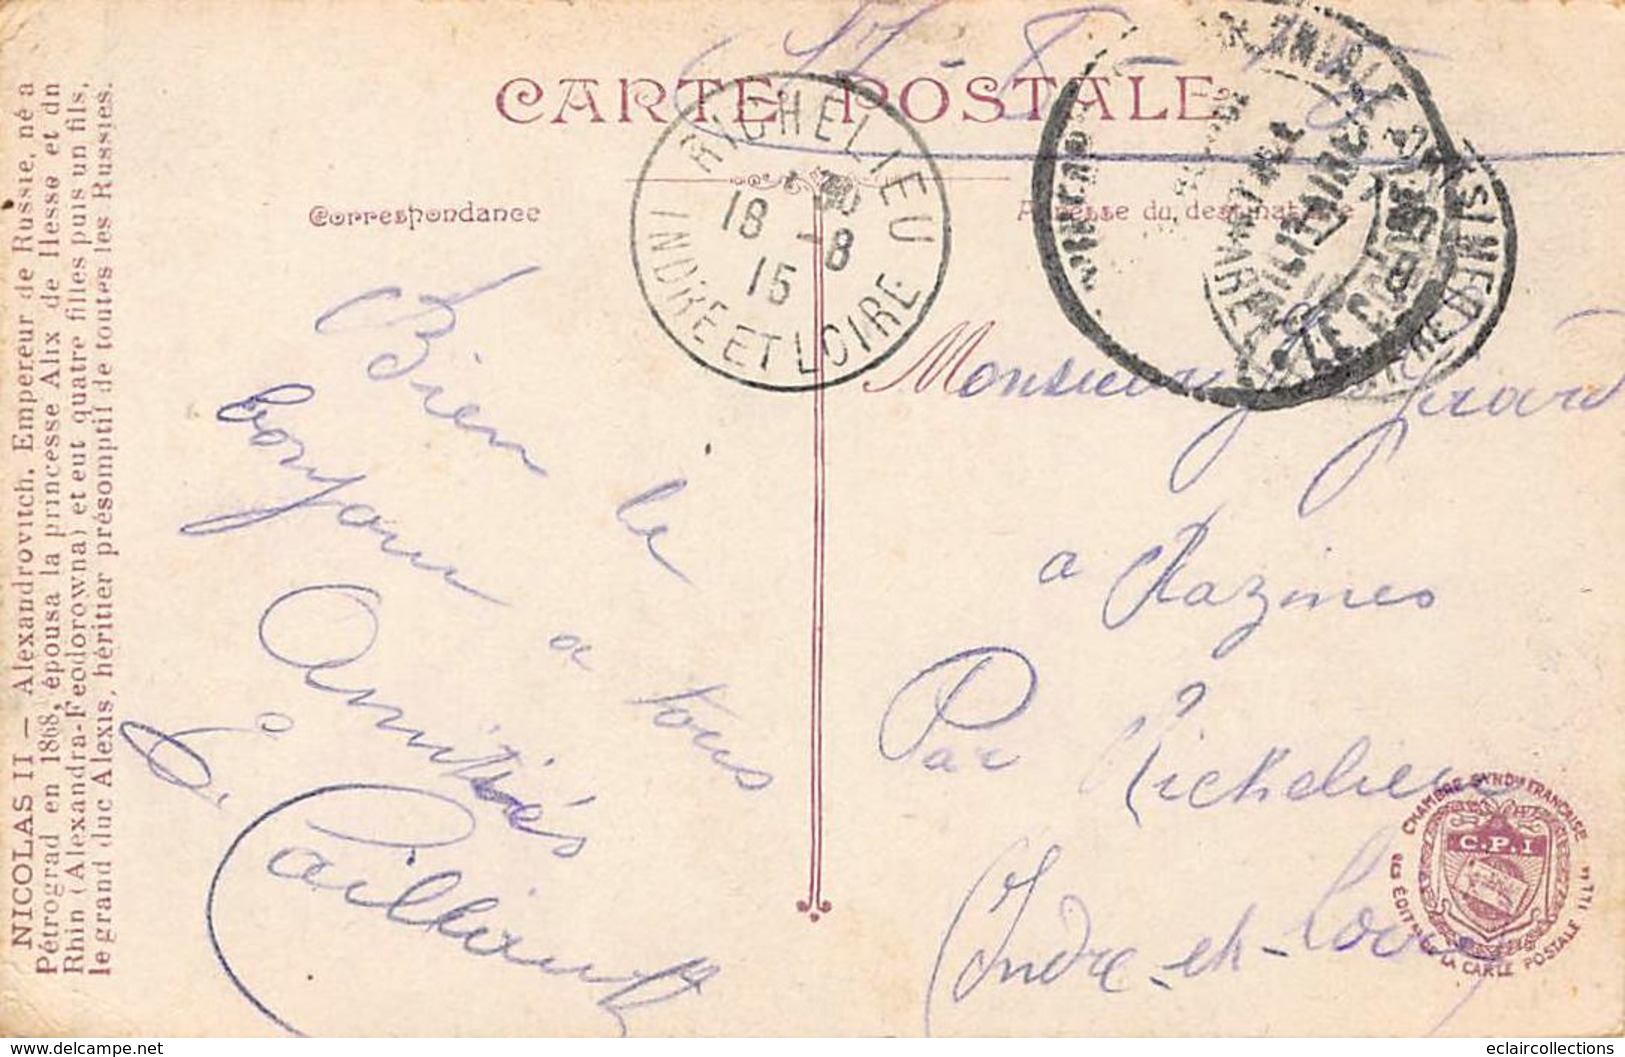 CARTE POSTALE
Correspondance
Adresse du destinataire
NICOLAS II — Alexandrovitch, Empereur de Russie, né a
Pétrograd en 1868, épousa la princesse Alix de Hesse et dn
Rhin (Alexandra-Feodorowna) et eut quatre filles puis un fils,
le grand duc Alexis, héritier présomptif de toutes les Russies.
RICHELIEU
18 -8
15
INDRE ET LOIRE
Bien le
bonjour a tous
Amitiés
Monsieur
a Razines
Par Richelieu
Indre-et-Loire
CHAMBRE SYNDle FRANÇAISE
C.P.I
DES ÉDITrs DE LA CARTE POSTALE ILLee
www.delcampe.net
eclaircollections